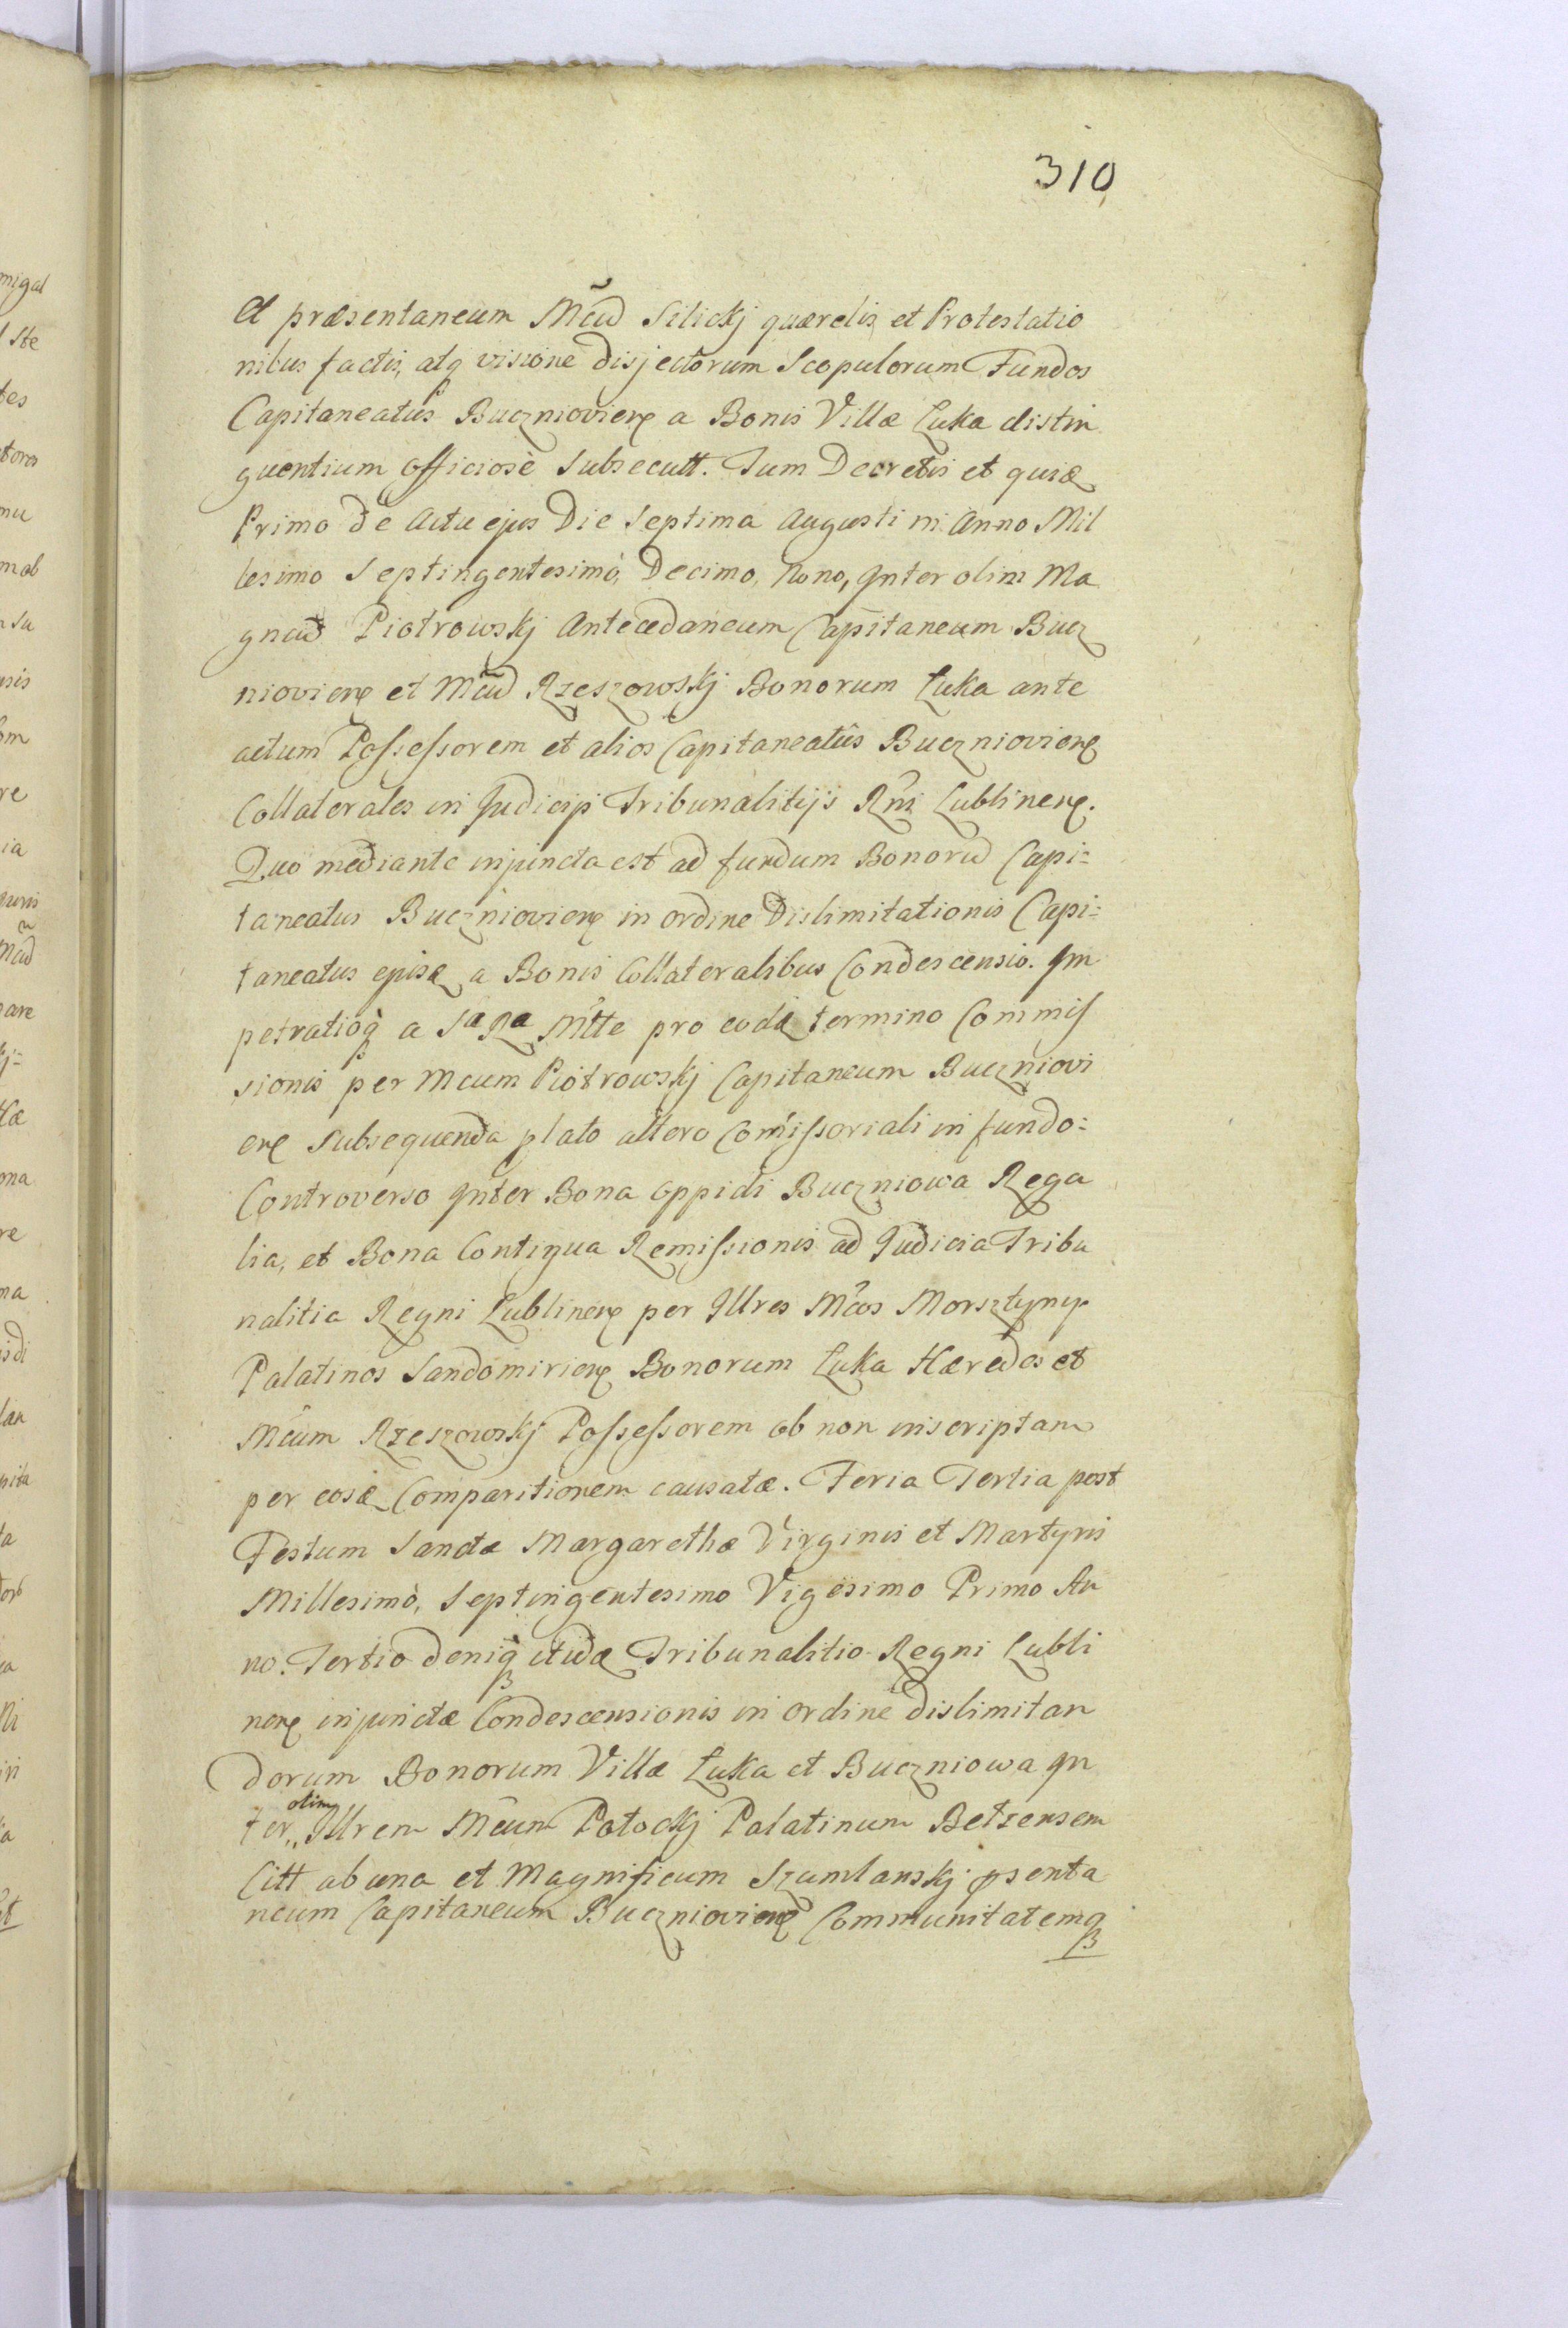 310
et præsentaneum Mcũ Silickj quærelis et Protestatio
nibus factis, atq visione disjectorum Scopulorum Fundos
Capitaneatus Buczniovien̄ a Bonis Villæ Łuka distin
guentium officiose Subsecutt. Tum Decretis et quidē
Primo de Actu ejus Die Septima Augusti in Anno Mil
lesimo Septingentesimo, Decimo, Nono, Inter olim Ma
gncũ Piotrowskj Antecedaneum Capitaneum Bucz
niovien̄ et Mcũ Rzeszowskj Bonorum Łuka ante
actum Possessorem et alios Capitaneatûs Buczniovien̄
Collaterales in Judicijs Tribunalitijs Rñi Lublinen̄.
Quo mediante injuncta est ad fundum Bonorũ Capi=
taneatus Buczniovien̄ in ordine Dislimitationis Capi=
taneatus ejusdē a Bonis Collateralibus Condescensio. Im
petratioq a Sa Ra Mtte pro eodē termino Commis
sionis per Mcum Piotrowskj Capitaneum Buczniovi
en̄ Subsequenda plato altero Comissoriali in fundo=
Controverso Inter Bona oppidi Buczniowa Rega
lia, et Bona Contigua Remissionis ad Judicia Tribu
nalitia Regni Lublinen̄ per Illres Mcos Morsztyny
Palatinos Sandomirien̄ Bonorum Łuka Hæredes et
Mcum Rzeszowskj Possessorem ob non inscriptam
per eosdē Comparitionem causatæ. Feria Tertia post
Festum Sanctæ Margarethæ Virginis et Martyris
Millesimo, Septingentesimo Vigesimo Primo An
no. Tertio deniq itidē Tribunalitio Regni Lubli
nen̄ injunctæ Condescensionis in ordine dislimitan
dorum Bonorum Villæ Łuka et Buczniowa In
ter„ olim Illrem Mcum Potockj Palatinum Betzensem
Citt ab una et Magnificum Szumlanskj psenta
neum Capitaneum Buczniovien̄ Communitatemq